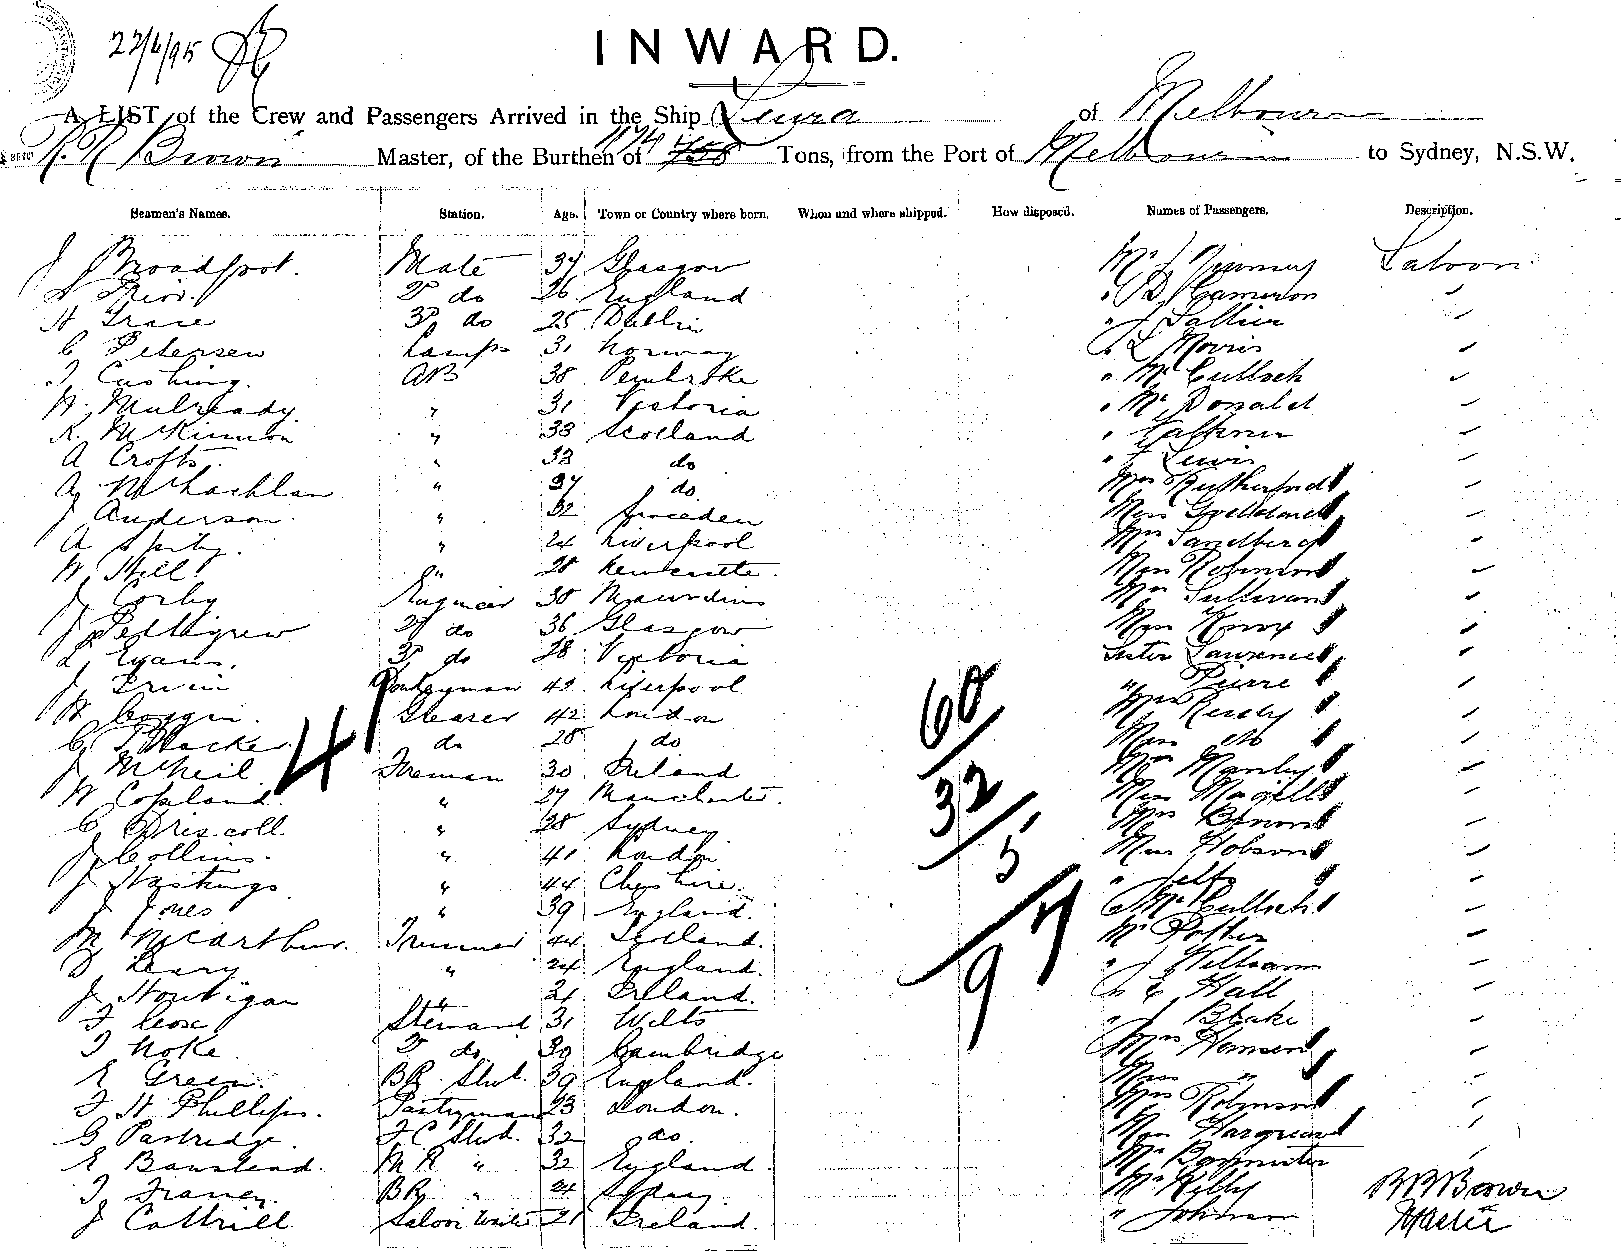 22/6/95
INWARD.
A LIST of the Crew and Passengers Arrived in the Ship Leura of Melbourne
R. R. Brown Master, of the Burthen of 1174 Tons, from the Port of Melbourne to Sydney, N.S.W.
Seamen's Names. Station. Age. Town or Country where born. When and where shipped. How disposed. Names of Passengers. Description.
J Broadfoot. Mate 37 Glasgow Mr J Saloon
Prior. 2d do 26 England " D Cameron "
H Grace 3d do 25 Dublin " J "
C Petersen Lamps 31 Norway L Morris "
T Cushing. AB 38 Pembroke " McCulloch "
W. Mulready " 31 Victoria " McDonald "
K. McKinnon " 33 Scotland " "
A Crofts. " 33 do " Lewis "
A McLachlan " 37 do Mrs Rutherford "
J Anderson. " 32 Sweeden Miss "
A " 24 Liverpool Mrs Sandberg "
W. Hill " 28 Newcastle. Miss Robinson "
J Corby Engineer 38 Mauritius Mrs Sullivan "
J Pettigrew 2d do 36 Glasgow Miss Knox "
L. Evans. 3d do 28 Victoria Sister Laurence "
J Irvin Donkeyman 42 Liverpool " Pierre "
H Coggin. Greaser 42 London Mrs Ready "
C. Thacker. do 28 do Miss do "
J McNeil Fireman 30 Ireland Mrs Manly "
W Copeland. " 27 Manchester. Miss Magill "
C Driscoll. " 28 Sydney Mrs "
J Collins. " 41 London Miss Hobson "
J Hastings " 44 Cheshire. " "
J Jones " 39 England. McCulloch "
M McCarthur. Trimmer 44 Scotland. Mr "
D Leary " 24 England. " J William "
J Hourigan " 21 Ireland. C Hall "
F Steward 31 Wilts " J Blake "
T Noke 2d do 39 Cambridge Mrs Hansen "
E Green. BR Stwd. 39 England. Miss " "
F. H Phillips. Pastryman 23 London. Mrs Robinson "
G Partridge. F.C Stwd. 32 do. Miss Hargreaves "
E Banstead. MR " 32 England Mr
T. BR " 24 Sydney. Mr Kelly R R Brown
J Cottrill Saloon Waiter 21 Ireland. " Johnson Master
41
60
32
5
97